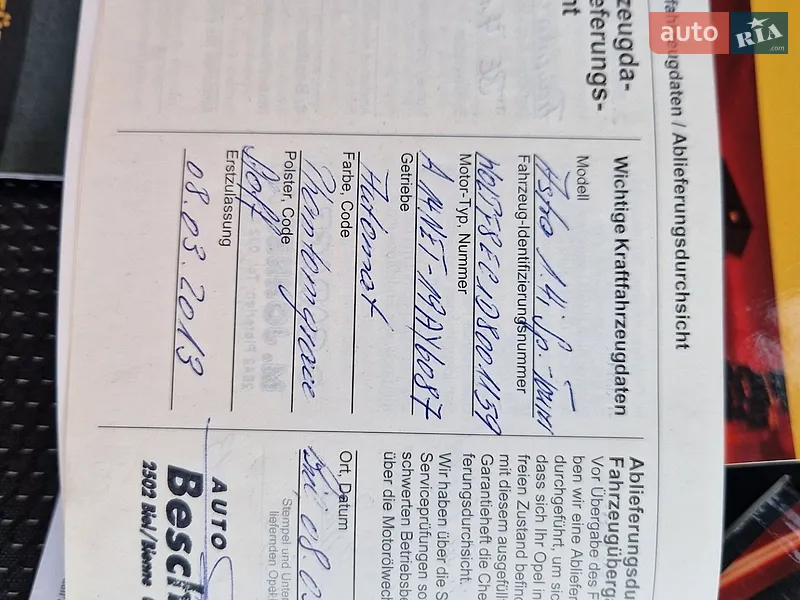 auto RIA .com
fahrzeugdaten / Ablieferungsdurchsicht
zeugda-
eferungs-
ht
Wichtige Kraftfahrzeugdaten
Modell
Astra 1.4i Sp.-Tourer
Fahrzeug-Identifizierungsnummer
Motor-Typ, Nummer
A14NET-19AY6087
Getriebe
Automat
Farbe, Code
Phantomgrau
Polster, Code
Stoff
Erstzulassung
08.03.2013
Ablieferungsdu
Fahrzeugüberga
Vor Übergabe des F
ben wir eine Ablieferu
durchgeführt, um sic
dass sich Ihr Opel in
freien Zustand befind
mit diesem ausgefüll
Garantieheft die Che
ferungsdurchsicht.
Wir haben über die S
Serviceprüfungen so
schwerten Betriebsbe
über die Motorölwech
Ort, Datum
Biel 08.03
Stempel und Unter
liefernden Opel
AUTO
Besch
2502 Biel/Bienne